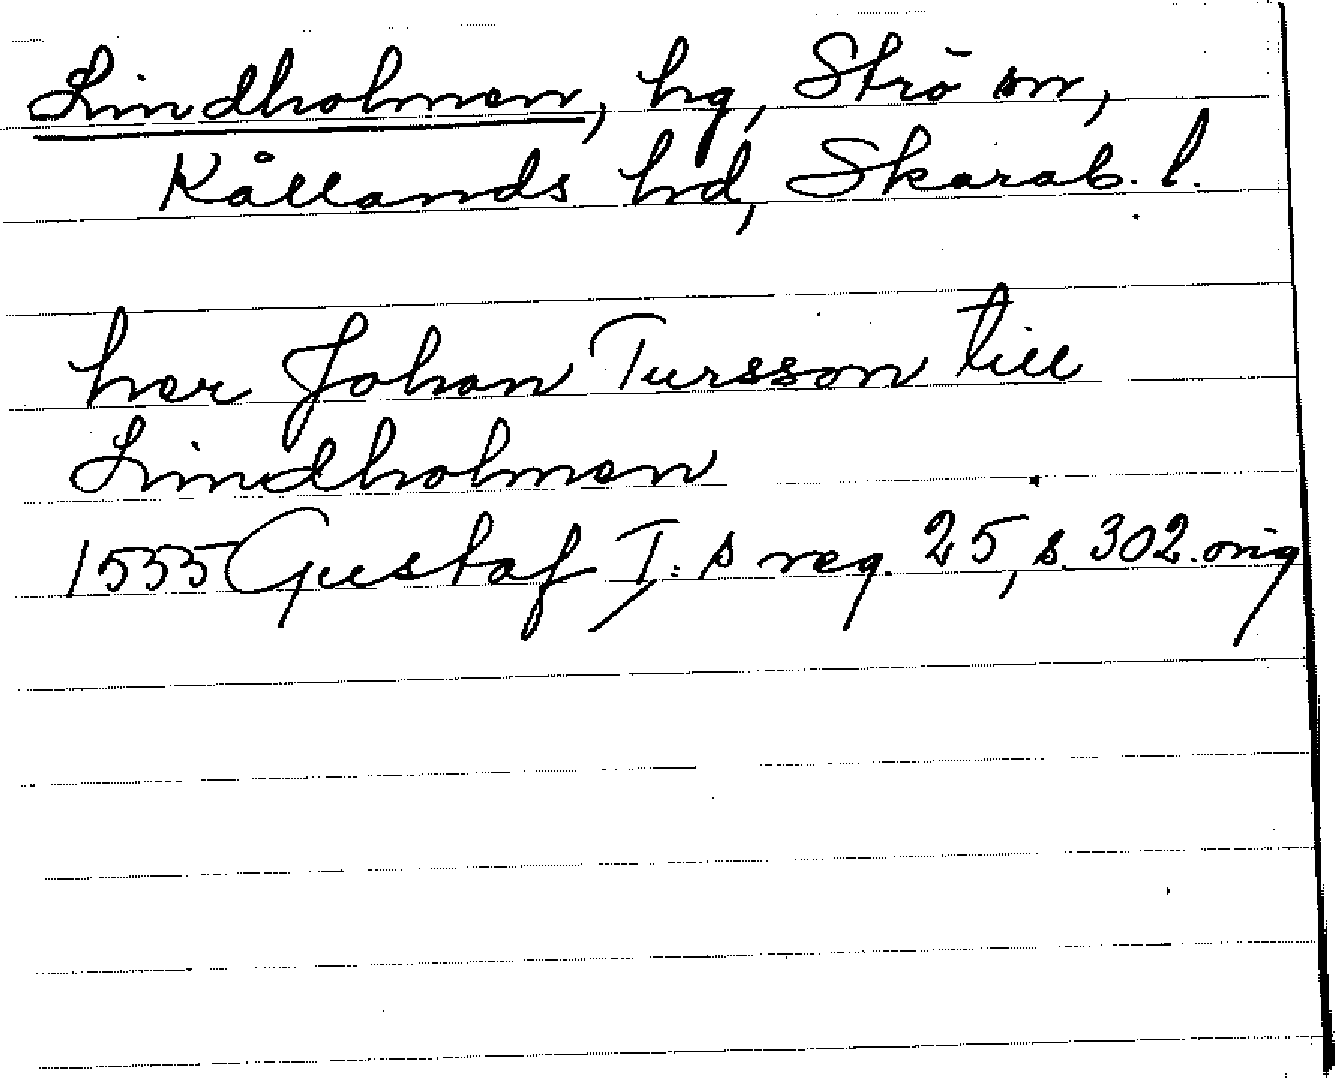 Lindholmen, hg, Strö sn,
Kållands hd, Skarab. l.
her Johan Tursson till
Lindholmen
1555 Gustaf I:s reg. 25, s. 302. orig